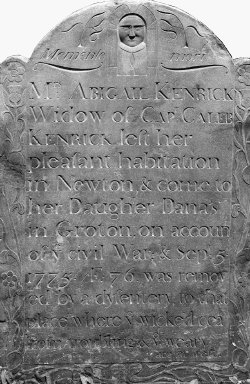 Memento mori.
Mrs ABIGAIL KENRICK
Widow of CAP. CALEB
KENRICK left her
pleasant habitation
in Newton, & come to
her Daugher Danas
in Groton, on account
of ye civil War, & Sep. 5
1775 Æ 76 was remov
ed by a dysentery to that
place where ye wicked cea
from troubling & ye weary